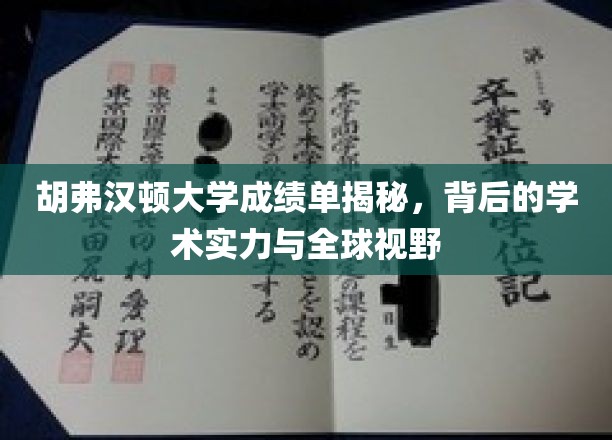 胡弗汉顿大学成绩单揭秘，背后的学
术实力与全球视野
第 号
卒業証 学位記
日生
本学商学部 定の課程を
修めて本学 ことを認め
学士(商学)の する
平成
東京国際大学 村愛理
東京国際大 長田尻嗣夫